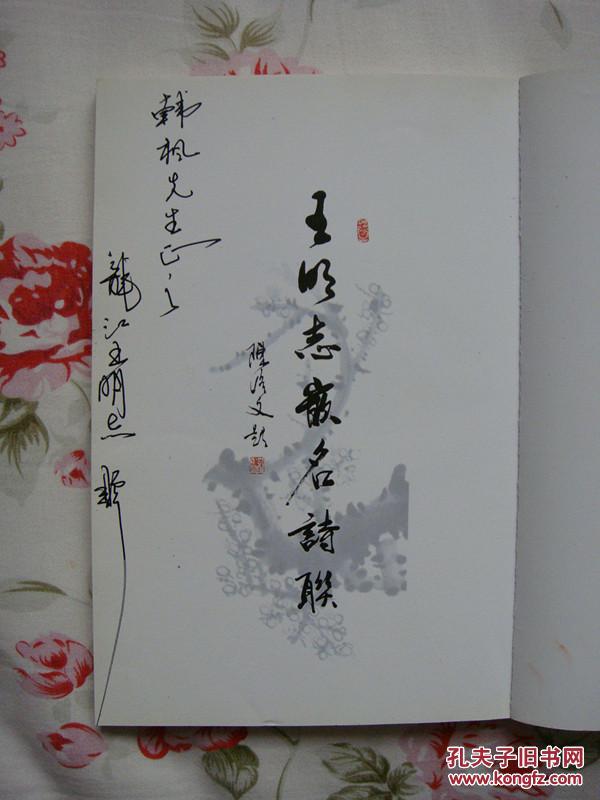 王明志嵌名詩聯
文題
韩枫先生正之
龍江王明志
孔夫子旧书网
www.kongfz.com